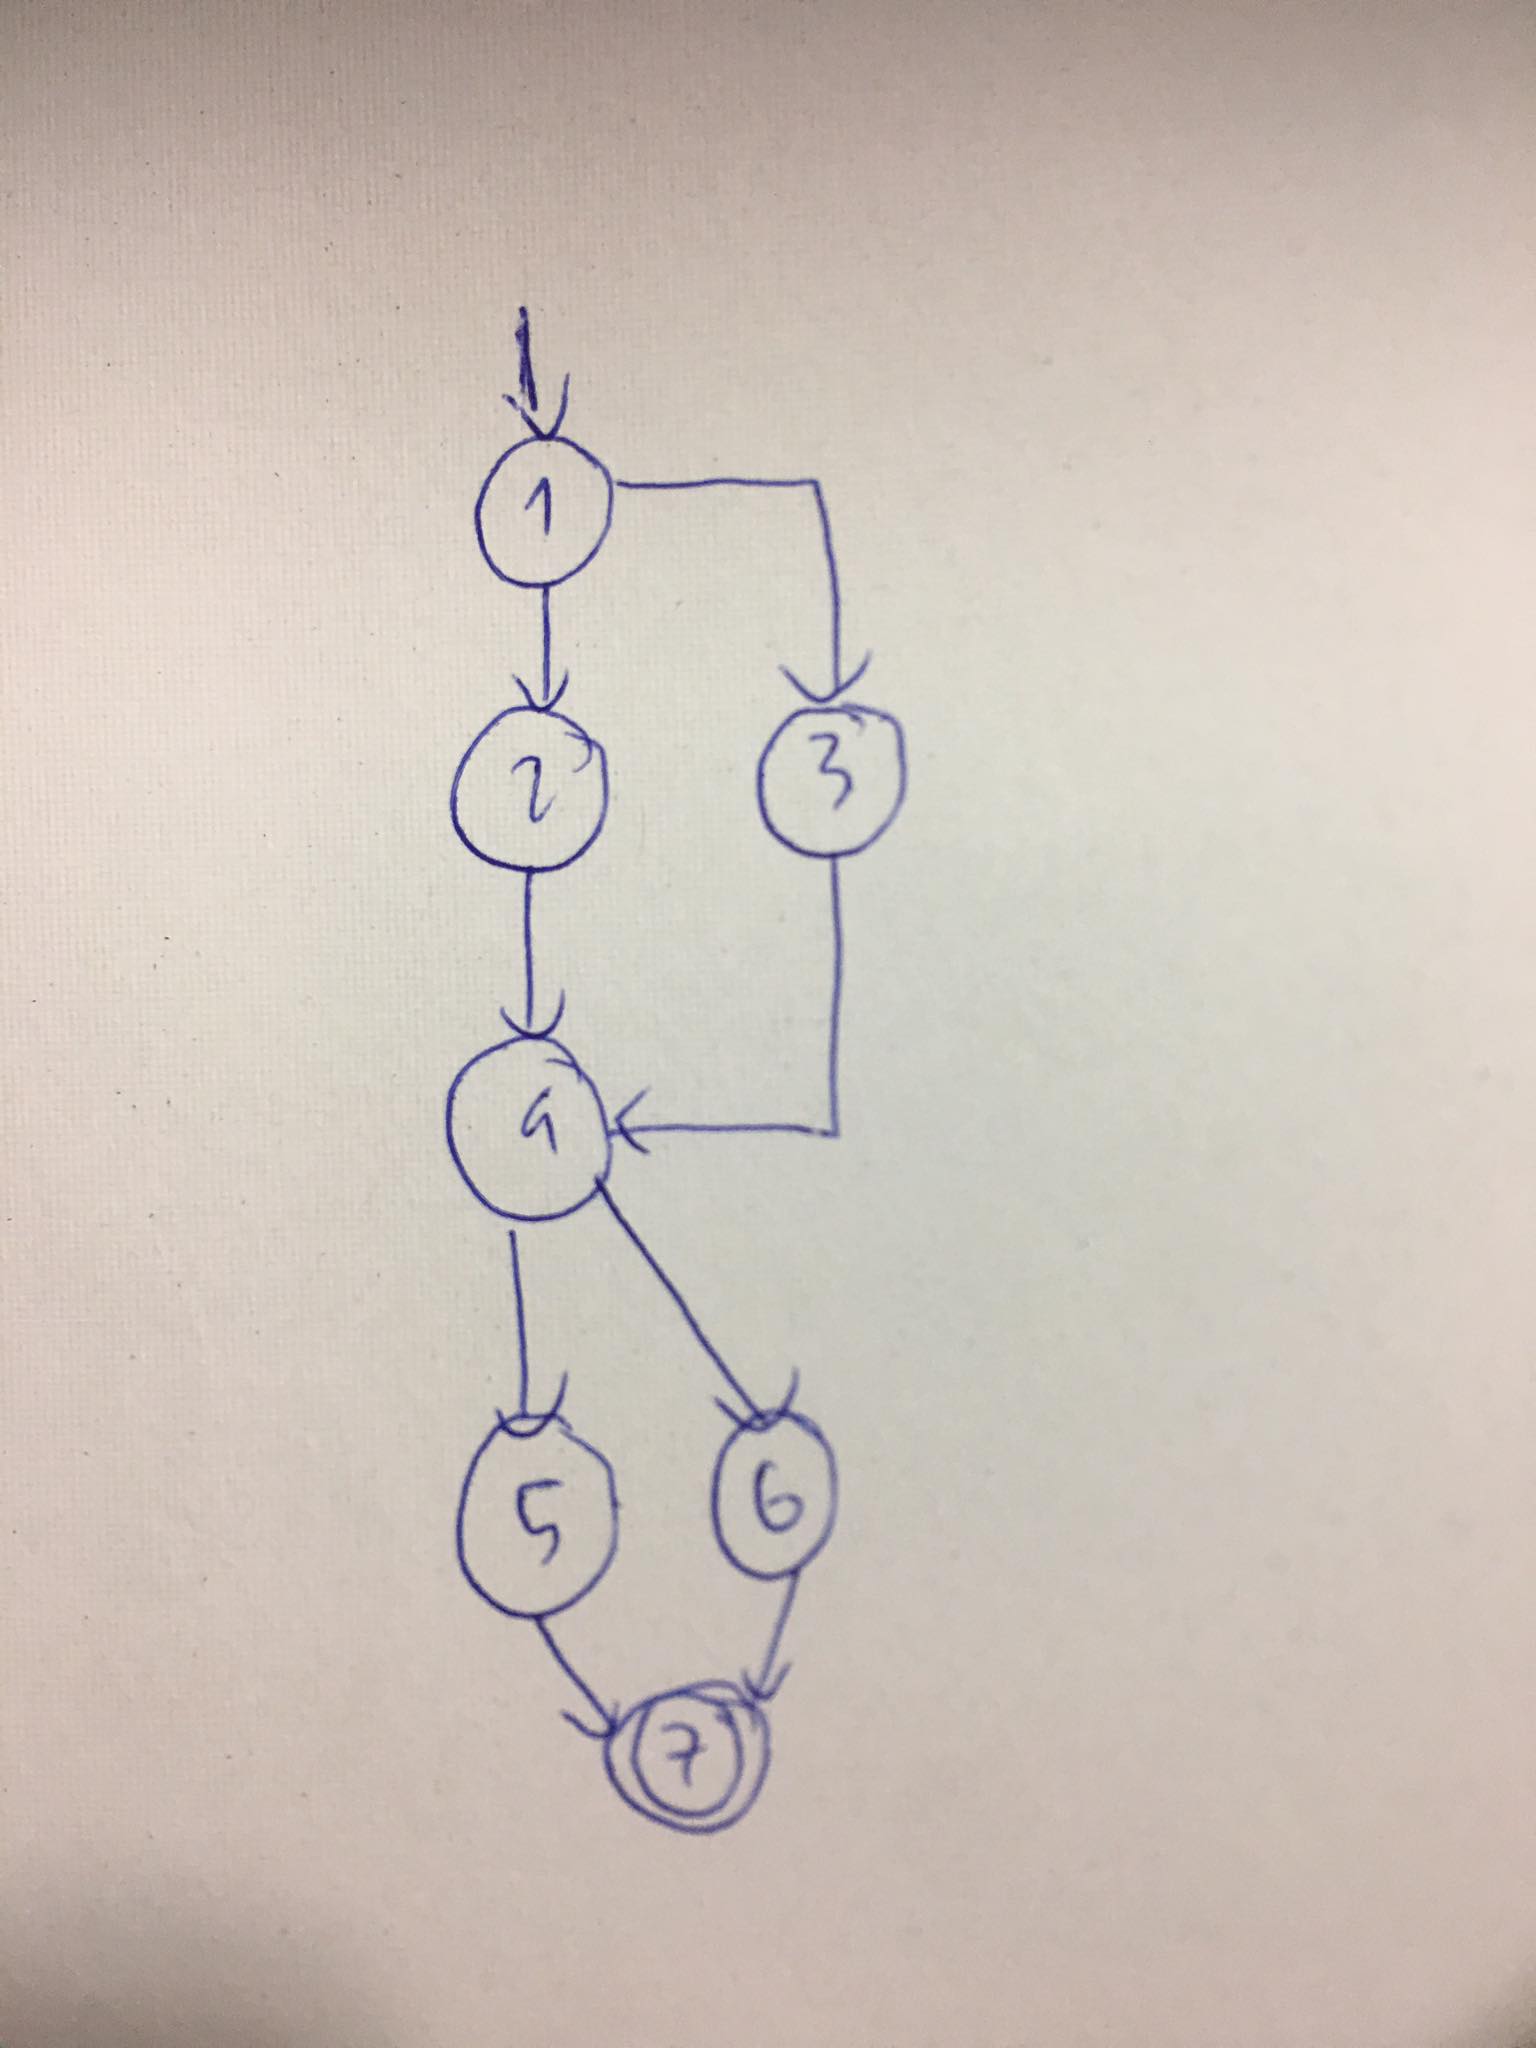 1
2 3
4
5 6
7